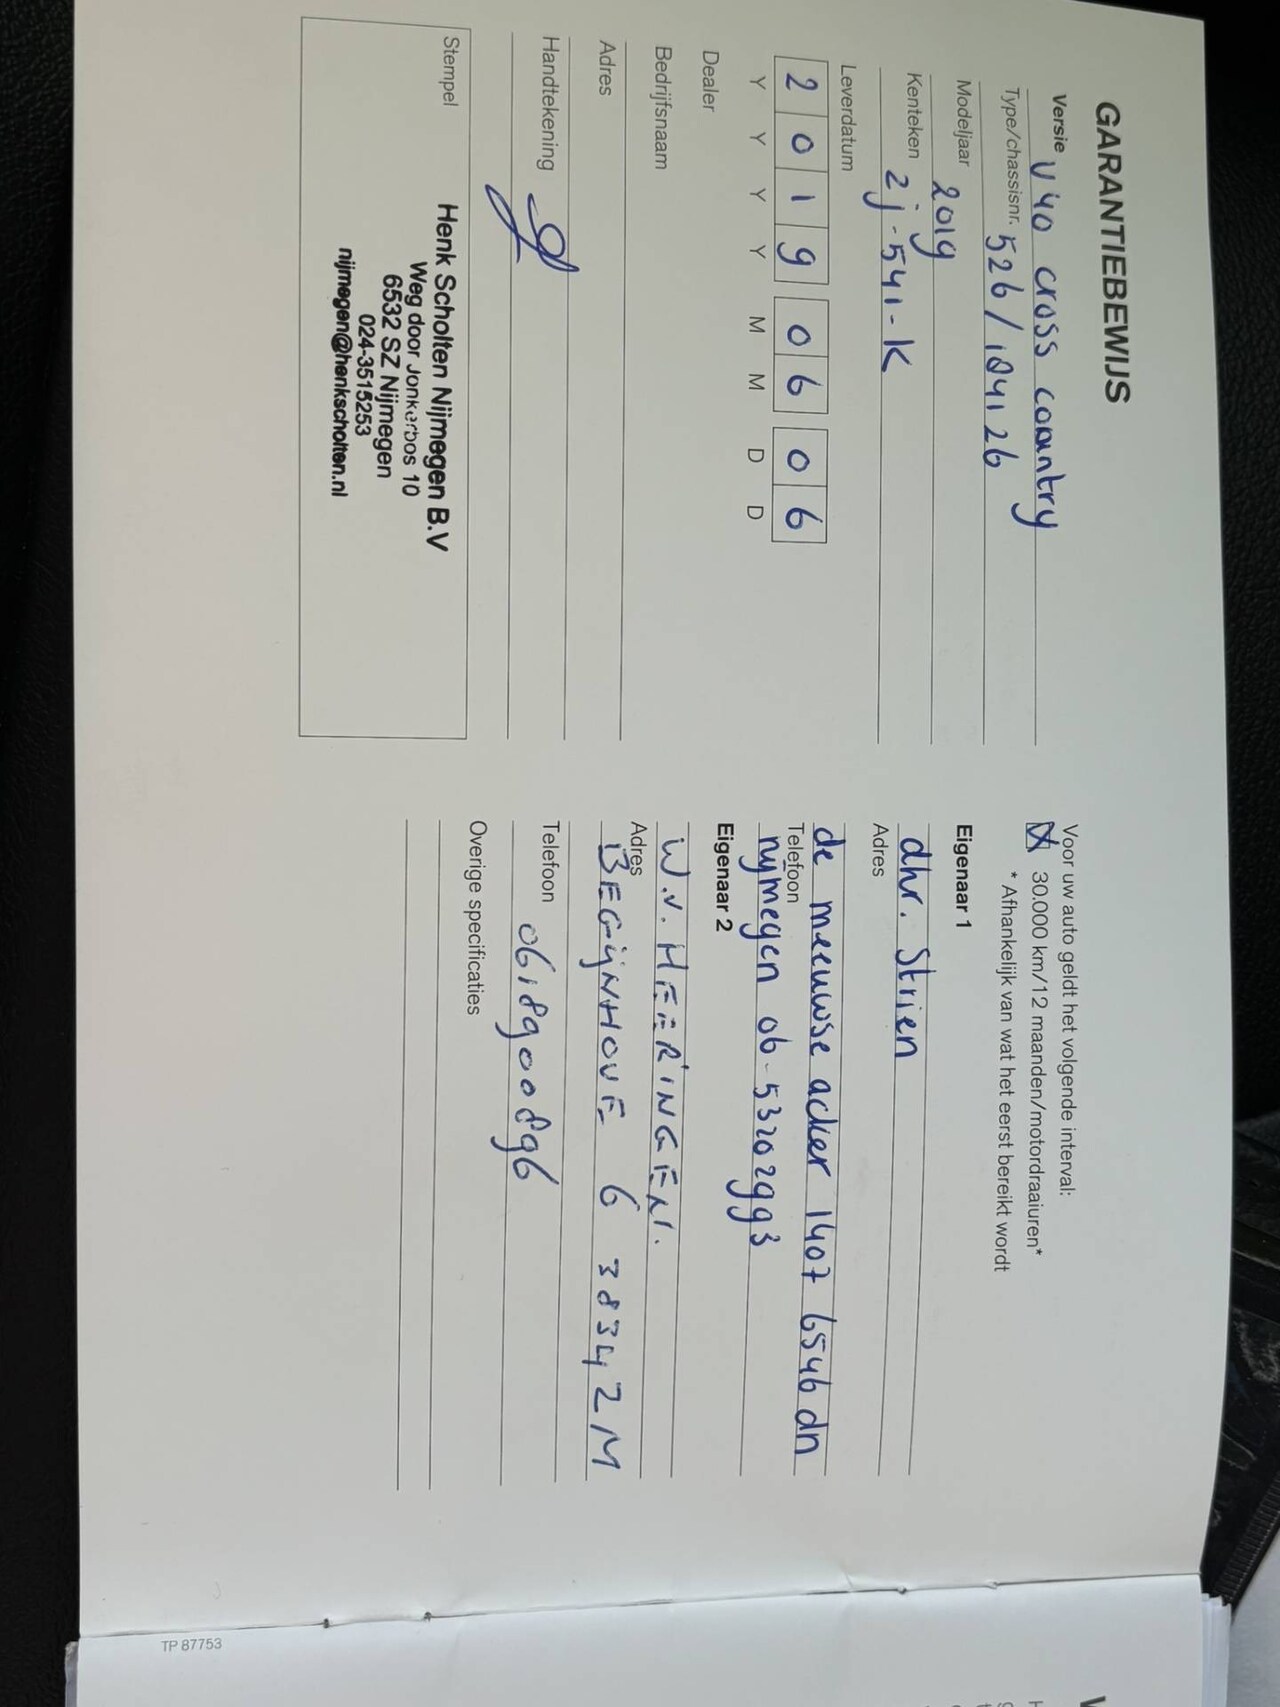 GARANTIEBEWIJS
Versie V40 cross country
Type/chassisnr. 526/184126
Modeljaar 2019
Kenteken 2j-541-K
Leverdatum
2 0 1 9 0 6 0 6
Y Y Y Y M M D D
Dealer
Bedrijfsnaam
Adres
Handtekening
Stempel
Henk Scholten Nijmegen B.V
Weg door Jonkerbos 10
6532 SZ Nijmegen
024-3515253
nijmegen@henkscholten.nl
Voor uw auto geldt het volgende interval:
30.000 km/12 maanden/motordraaiuren*
* Afhankelijk van wat het eerst bereikt wordt
Eigenaar 1
dhr. Strien
Adres
de meeuwse acker 1407 6546 dn
Telefoon
nijmegen 06-53202993
Eigenaar 2
W.v. HEERINGEN.
Adres
BEGIJNHOVE 6 3834ZM
Telefoon 0618900896
Overige specificaties
TP 87753